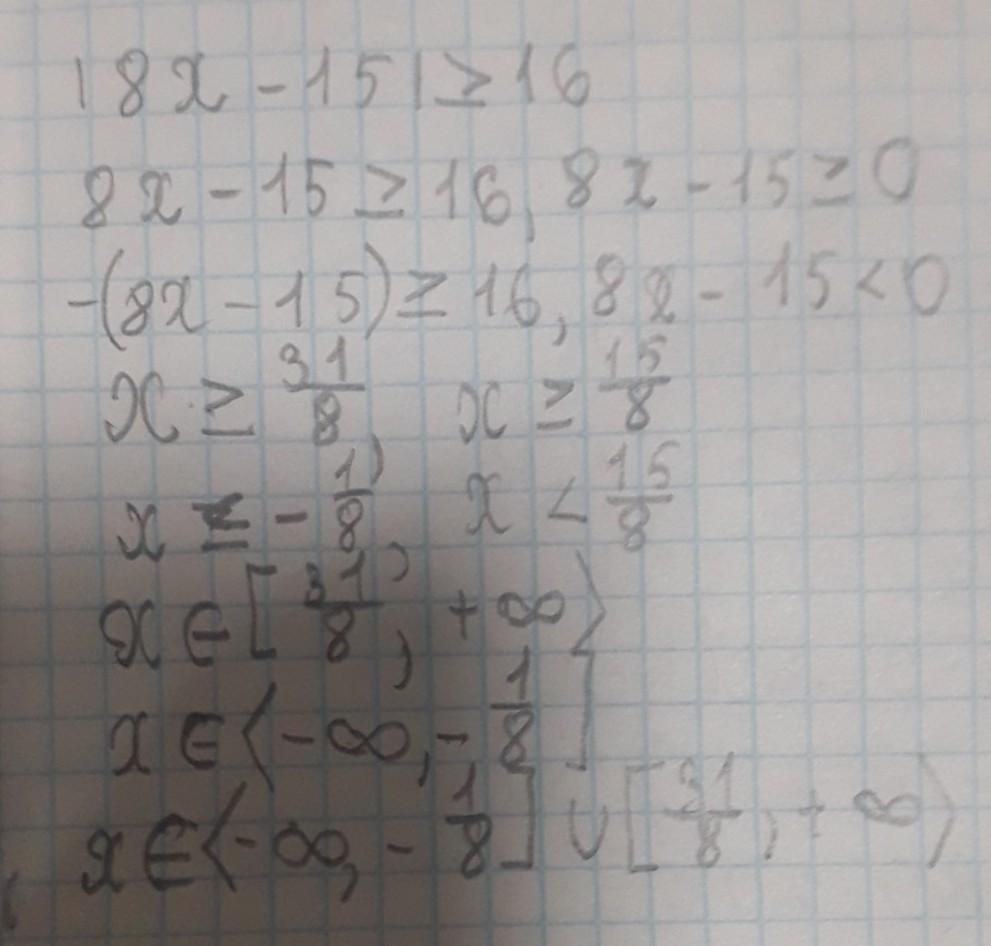 |8x - 15| ≥ 16
8x - 15 ≥ 16, 8x - 15 ≥ 0
-(8x - 15) ≥ 16, 8x - 15 < 0
x ≥ 31/8, x ≥ 15/8
x ≤ - 1/8, x < 15/8
x ∈ [31/8, + ∞⟩
x ∈ ⟨- ∞, - 1/8]
x ∈ ⟨- ∞, - 1/8] ∪ [31/8, + ∞⟩